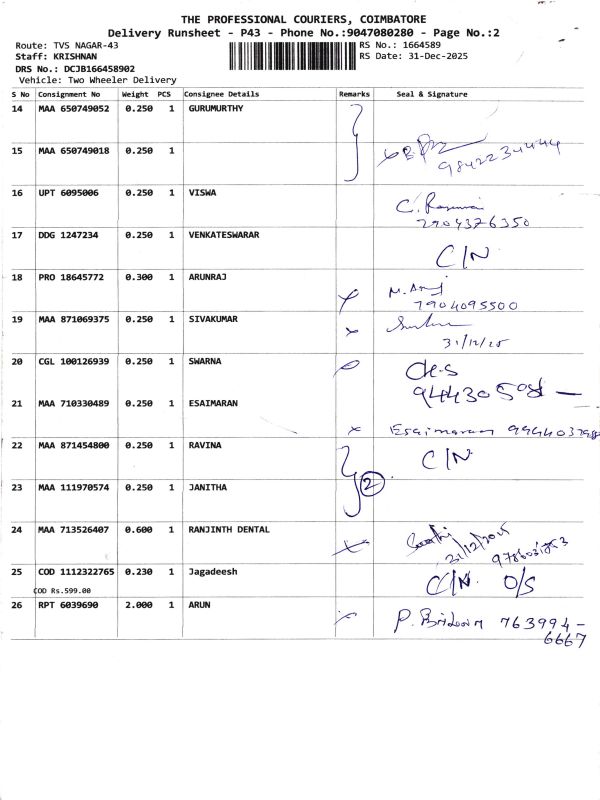 THE PROFESSIONAL COURIERS, COIMBATORE
Delivery Runsheet - P43 - Phone No.:9047080280 - Page No.:2
Route: TVS NAGAR-43 RS No.: 1664589
Staff: KRISHNAN RS Date: 31-Dec-2025
DRS No.: DCJB166458902
Vehicle: Two Wheeler Delivery
S No Consignment No Weight PCS Consignee Details Remarks Seal & Signature
14 MAA 650749052 0.250 1 GURUMURTHY
15 MAA 650749018 0.250 1
16 UPT 6095006 0.250 1 VISWA C.
17 DDG 1247234 0.250 1 VENKATESWARAR C/N
18 PRO 18645772 0.300 1 ARUNRAJ
7904095500
19 MAA 871069375 0.250 1 SIVAKUMAR
31/12/25
20 CGL 100126939 0.250 1 SWARNA
21 MAA 710330489 0.250 1 ESAIMARAN Esaimaran
22 MAA 871454800 0.250 1 RAVINA C/N
23 MAA 111970574 0.250 1 JANITHA 2
24 MAA 713526407 0.600 1 RANJINTH DENTAL
31/12/2025
25 COD 1112322765 0.230 1 Jagadeesh C/N. O/S
COD Rs.599.00
26 RPT 6039690 2.000 1 ARUN P. 763994-
6667